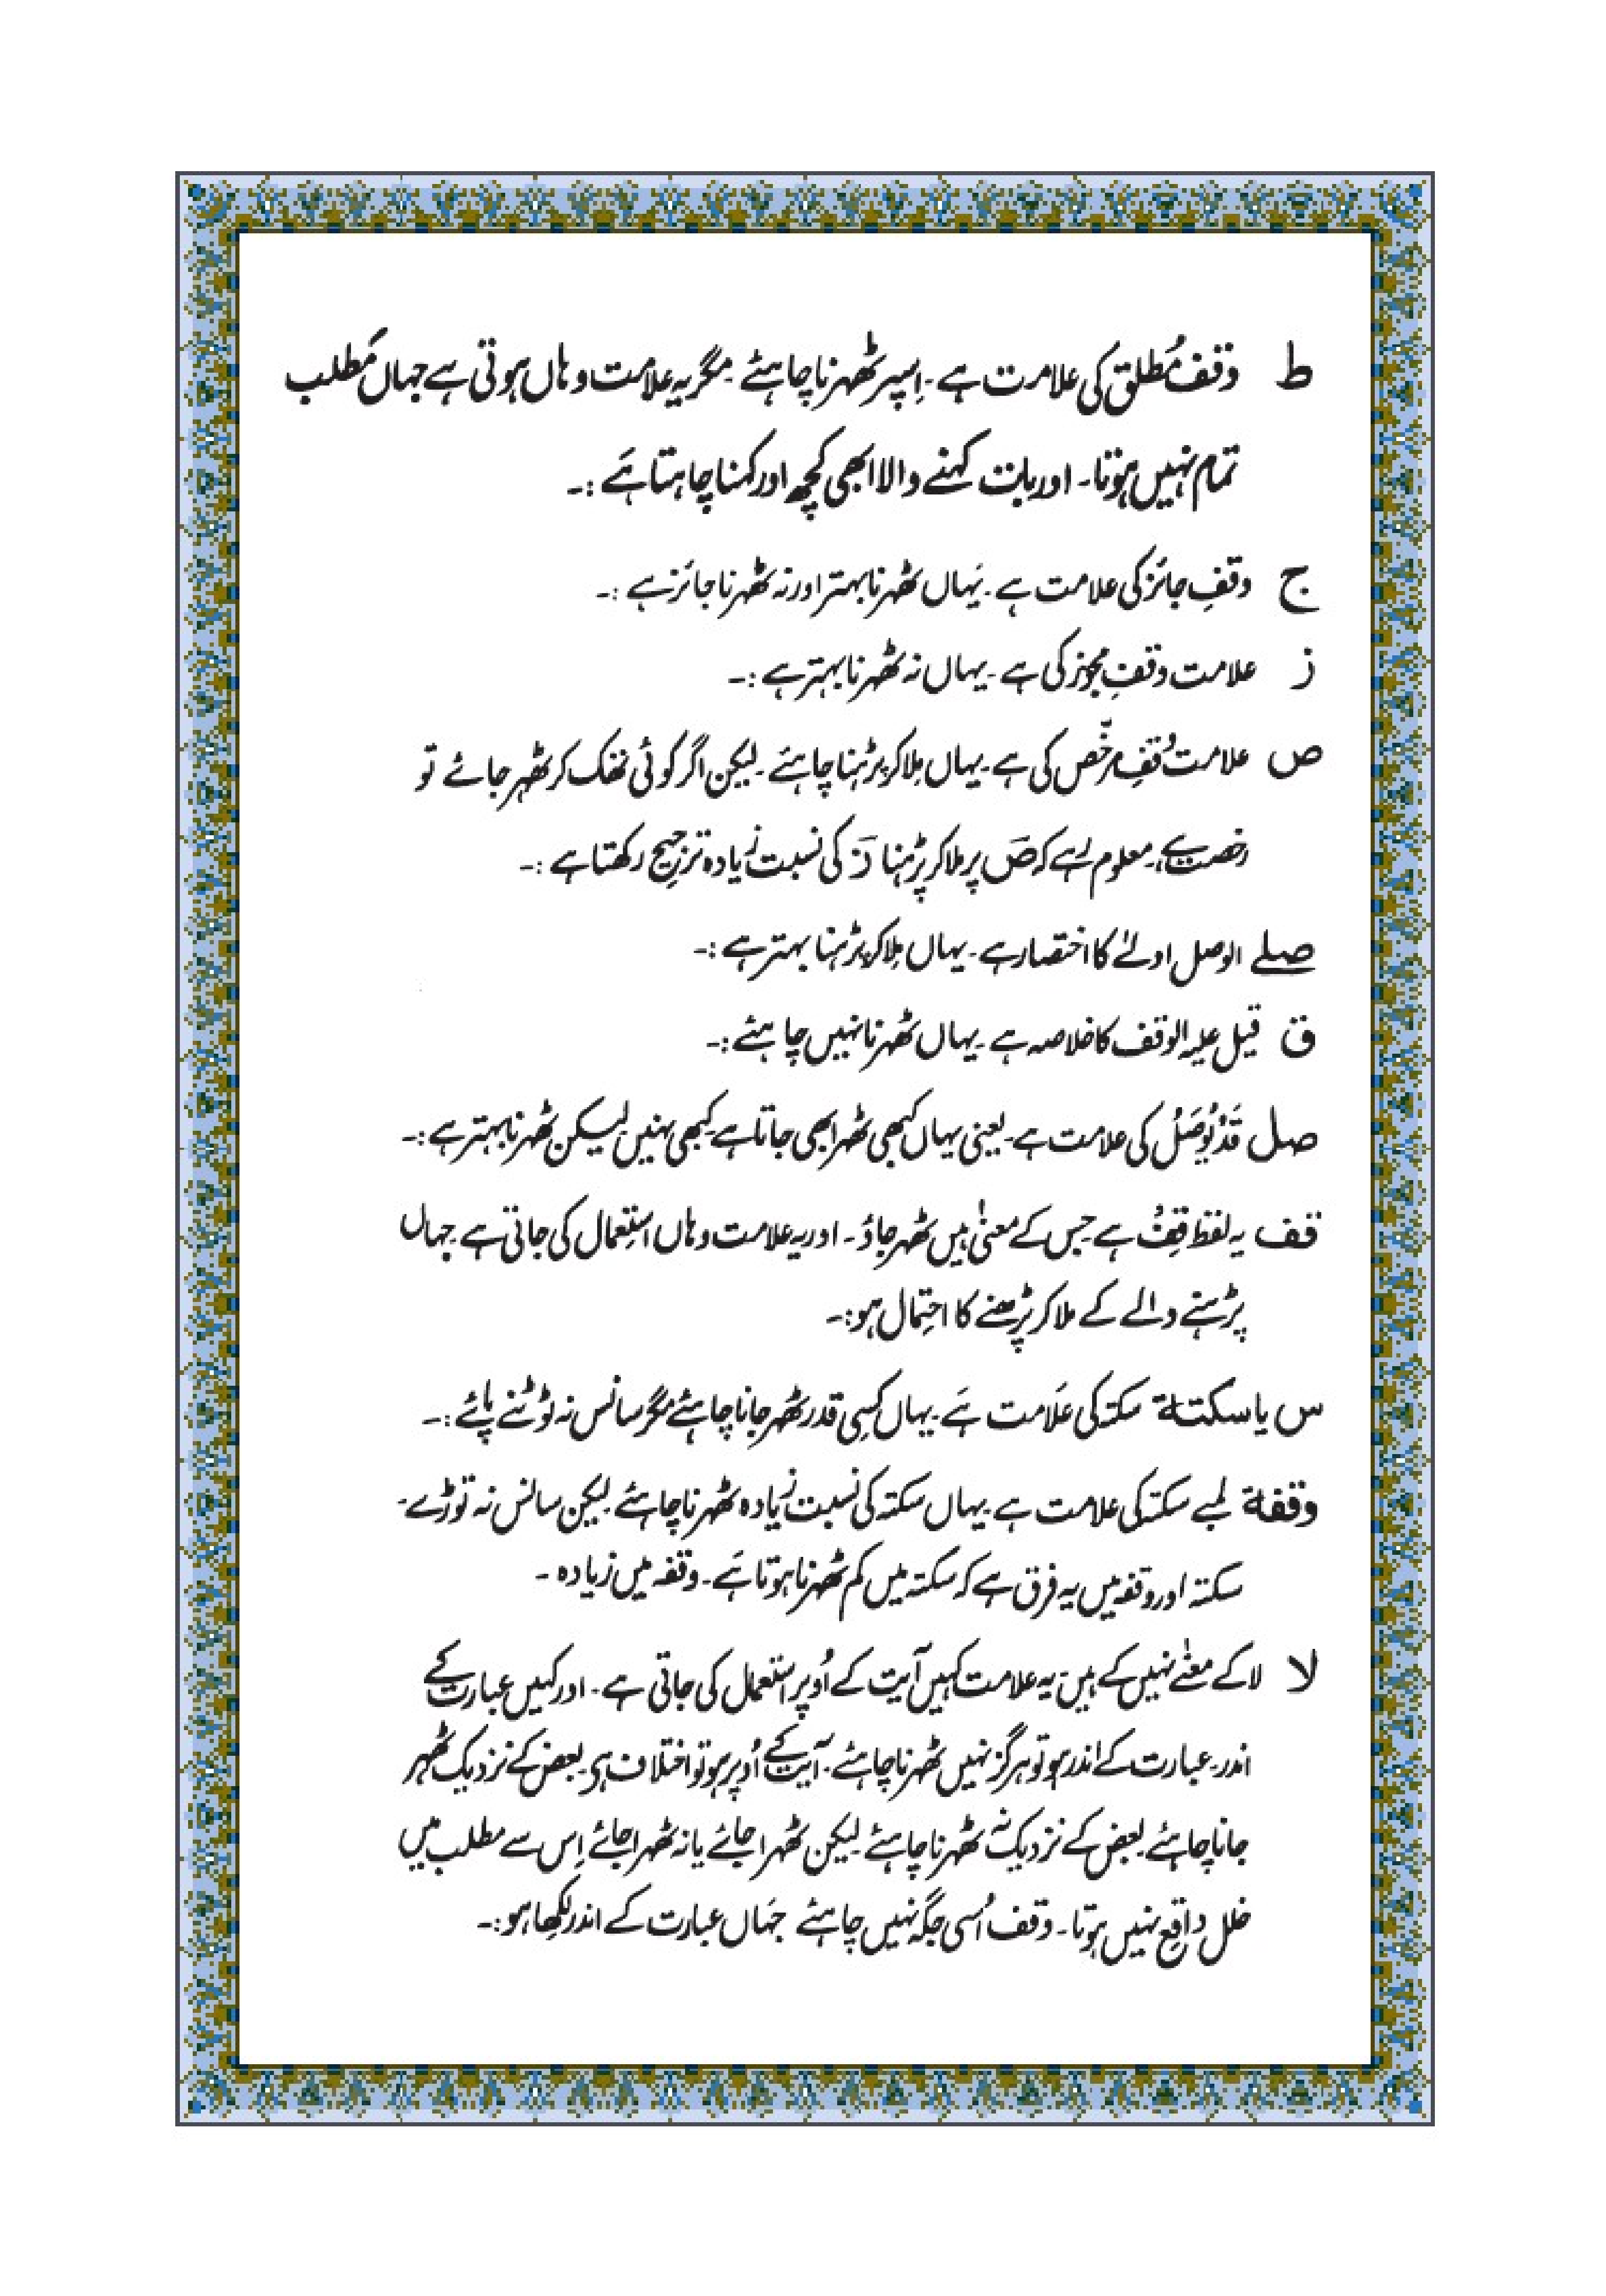 ط وقف مُطلق کی علامت ہے۔ اِسپر ٹھہرنا چاہئے۔ مگر یہ علامت وہاں ہوتی ہے جہاں مَطلب
تمام نہیں ہوتا۔ اور بات کہنے والا ابھی کچھ اور کہنا چاہتا ہَے :۔
ج وقفِ جائز کی علامت ہے۔ یَہاں ٹھہرنا بہتر اور نہ ٹھہرنا جائز ہے :۔
ز علامت وقفِ مجوّز کی ہے۔ یہاں نہ ٹھہرنا بہتر ہے :۔
ص علامت وُقفِ مرخّص کی ہے۔ یہاں مِلا کر پڑہنا چاہئے۔ لیکن اگر کوئی تھک کر ٹھہر جائے تو
رخصت ہے۔ معلوم رہے کہ صَ پر ملا کر پڑہنا زَ کی نسبت زیادہ ترجیح رکھتا ہے :۔
صلے الوصل اولےٰ کا اختصار ہے۔ یہاں مِلا کر پڑہنا بہتر ہے :۔
ق قیل علیہ الوقف کا خلاصہ ہے۔ یہاں ٹھہرنا نہیں چاہئے :۔
صل قَدْ یُوصَلُ کی علامت ہے۔ یعنی یہاں کبھی ٹھہرا بھی جاتا ہے کبھی نہیں۔ لیکن ٹھہرنا بہتر ہے :۔
قف یہ لفظ قِفْ ہے جس کے معنیٰ ہیں ٹھہر جاؤ۔ اور یہ علامت وہاں استِعمال کی جاتی ہے۔ جہاں
پڑہنے والے کے ملا کر پڑھنے کا احتِمال ہو :۔
س یا سکتة سکتہ کی عَلامت ہَے۔ یہاں کسِی قدر ٹھہر جانا چاہئے مگر سانس نہ ٹوٹنے پائے :۔
وقفة لمبے سکتہ کی علامت ہے۔ یہاں سکتہ کی نسبت زیادہ ٹھہرنا چاہئے۔ لیکن سانس نہ توڑے۔
سکتہ اور وقفہ میں یہ فرق ہے کہ سکتہ میں کم ٹھہرنا ہوتا ہَے۔ وقفہ میں زیادہ ۔
لا لا کے معنےٰ نہیں کے ہیں۔ یہ علامت کہیں آیت کے اُوپر استعمال کی جاتی ہے۔ اور کہیں عبارت کے
اندر۔ عبارت کے اندر ہو تو ہرگز نہیں ٹھہرنا چاہئے۔ آیت کے اُوپر ہو تو اختلاف ہی۔ بعض کے نزدیک ٹھہر
جانا چاہئے۔ بعض کے نزدیک نہ ٹھہرنا چاہئے۔ لیکن ٹھہرا جائے یا نہ ٹھہرا جائے اِس سے مطلب میں
خلل واقع نہیں ہوتا۔ وقف اُسی جگہ نہیں چاہئے جہَاں عبارت کے اندر لکھِا ہو :۔